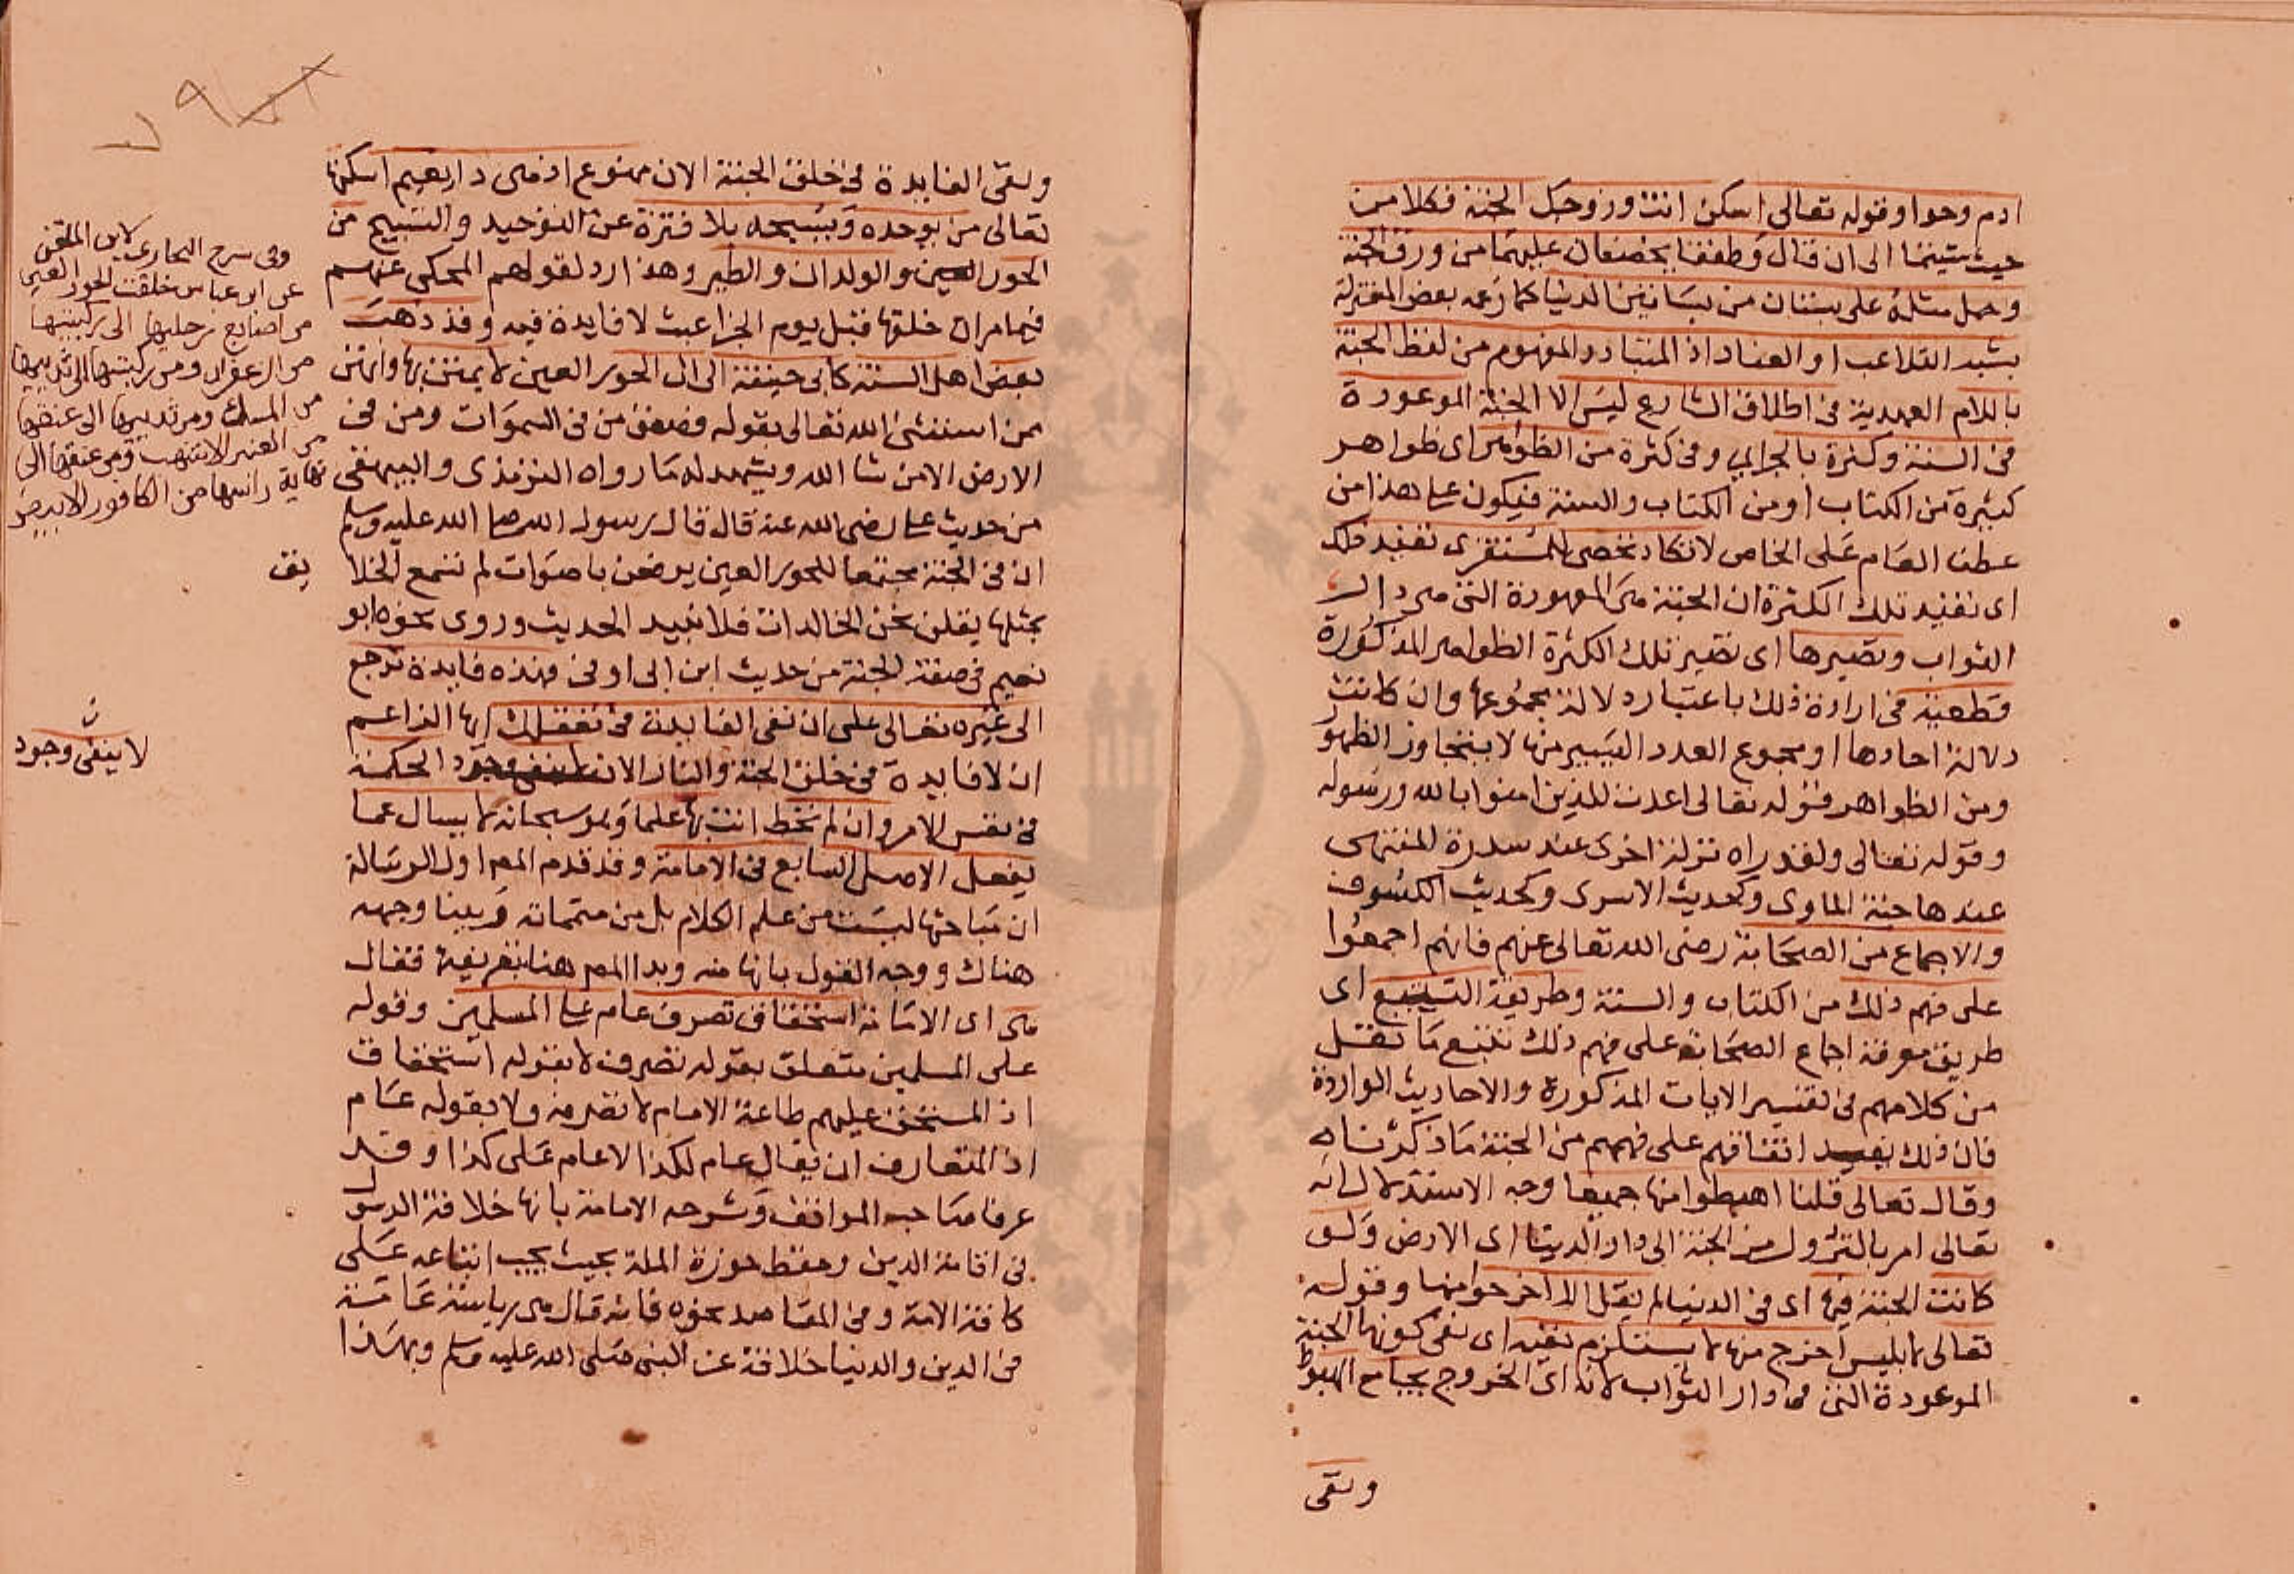 ادم وحوا وقوله تعالى اسكن انت وزوجك الجنة فكلا من
حيث شيتما الى ان قال وطفقا يخصفان عليهما من ورق الجنة
وحمل مثله على بستان من بساتين الدنيا كما زعمه بعض المعتزلة
يشبه التلاعب او العناد اذ المتبادر المفهوم من لفظ الجنة
باللام العهدية فى اطلاق الشارع ليس الا الجنة الموعودة
فى السنة وكثرة بالجر اي وفى كثرة من الظواهر اى ظواهر
كثيرة من الكتاب او من الكتاب والسنة فيكون على هذا من
عطف العام على الخاص لا تكاد تحصى للمستقرى تفيد ذلك
اى تفيد تلك الكثرة ان الجنة هى المعهودة التى هى دار
الثواب وتصيرها اى تصير تلك الكثرة الظواهر المذكورة
قطعية فى ارادة ذلك باعتبار دلالة مجموعها وان كانت
دلالة احادها او مجموع العدد اليسير منها لا يتجاوز الظهور
ومن الظواهر قوله تعالى اعدت للذين امنوا بالله ورسوله
وقوله تعالى ولقد راه نزلة اخرى عند سدرة المنتهى
عندها جنة الماوى وكحديث الاسرى وكحديث الكسوف
والاجماع من الصحابة رضى الله تعالى عنهم فانهم اجمعوا
على فهم ذلك من الكتاب والسنة وطريقة التتبع اى
طريق معرفة اجماع الصحابة على فهم ذلك تتبع ما نقل
من كلامهم فى تفسير الايات المذكورة والاحاديث الواردة
فان ذلك يفيد اتفاقهم على فهمهم من الجنة ما ذكرناه
وقال تعالى قلنا اهبطوا منها جميعا وجه الاستدلال انه
تعالى امر بالنزول من الجنة الى دار الدنيا اى الارض ولو
كانت الجنة فيها اى فى الدنيا لم يقل الا اخرجوا منها وقوله
تعالى لابليس اخرج منها لا يستلزم نفيه اى نفى كونها الجنة
الموعودة التى هى دار الثواب لانه اى الخروج يجامع الهبوط
ونفى
ونفى الفايدة فى خلق الجنة الان ممنوع اذ هى دار نعيم اسكنها
تعالى من يوحده ويسبحه بلا فترة عن التوحيد والتسبيح من
الحور العين والولدان والطير وهذا رد لقولهم المحكى عنهم
فيما مر ان خلقها قبل يوم الجزا عبث لا فايدة فيه وقد ذهب
بعض اهل السنة كابى حنيفة الى ان الحور العين لا يمتن وانهن
ممن استثنى الله تعالى بقوله فصعق من فى السموات ومن فى
الارض الا من شا الله ويشهد له ما رواه الترمذى والبيهقى
من حديث على رضى الله عنه قال قال رسول الله صلى الله عليه وسلم
ان فى الجنة مجتمعا للحور العين يرفعن باصوات لم تسمع الخلا
يق
بمثلها يقلن نحن الخالدات فلا نبيد الحديث وروى نحوه ابو
نعيم فى صفة الجنة من حديث ابن ابى اوفى فهذه فايدة ترجع
الى غيره تعالى على ان نفى الفايدة فى تعقلك ايها الزاعم
ان لا فايدة فى خلق الجنة والنار الان لا ينفى وجود الحكمة
فى نفس الامر وان لم تحط انت بها علما وهو سبحانه لا يسال عما
يفعل الاصل السابع فى الامامة وقد قدم المص اول الرسالة
ان مباحثها ليست من علم الكلام بل من متمماته وبينا وجهه
هناك ووجه القول بانها منه وبدا المص هنا بتعريفها فقال
هى اى الامامة استحقاق تصرف عام على المسلمين وقوله
على المسلمين متعلق بقوله تصرف لا بقوله استحقاق
اذ المستحق عليهم طاعة الامام لا تصرفه ولا بقوله عام
اذ المتعارف ان يقال عام لكذا لا عام على كذا وقد
عرفا صاحب المواقف وشرحه الامامة بانها خلافة الرسول
فى اقامة الدين وحفظ حوزة الملة بحيث يجب اتباعه على
كافة الامة وفى المقاصد نحوه فانه قال هى رياسة عامة
فى الدين والدنيا خلافة عن النبى صلى الله عليه وسلم وبهذا
وفى شرح البخارى لابن الملقن
عن ابن عباس خلقت الحور العين
من اصابع رجليها الى ركبتيها
من الزعفران ومن ركبتيها الى ثدييها
من المسك ومن ثدييها الى عنقها
من العنبر الاشهب ومن عنقها الى
نهاية راسها من الكافور الابيض
ن
لا ينفى وجود